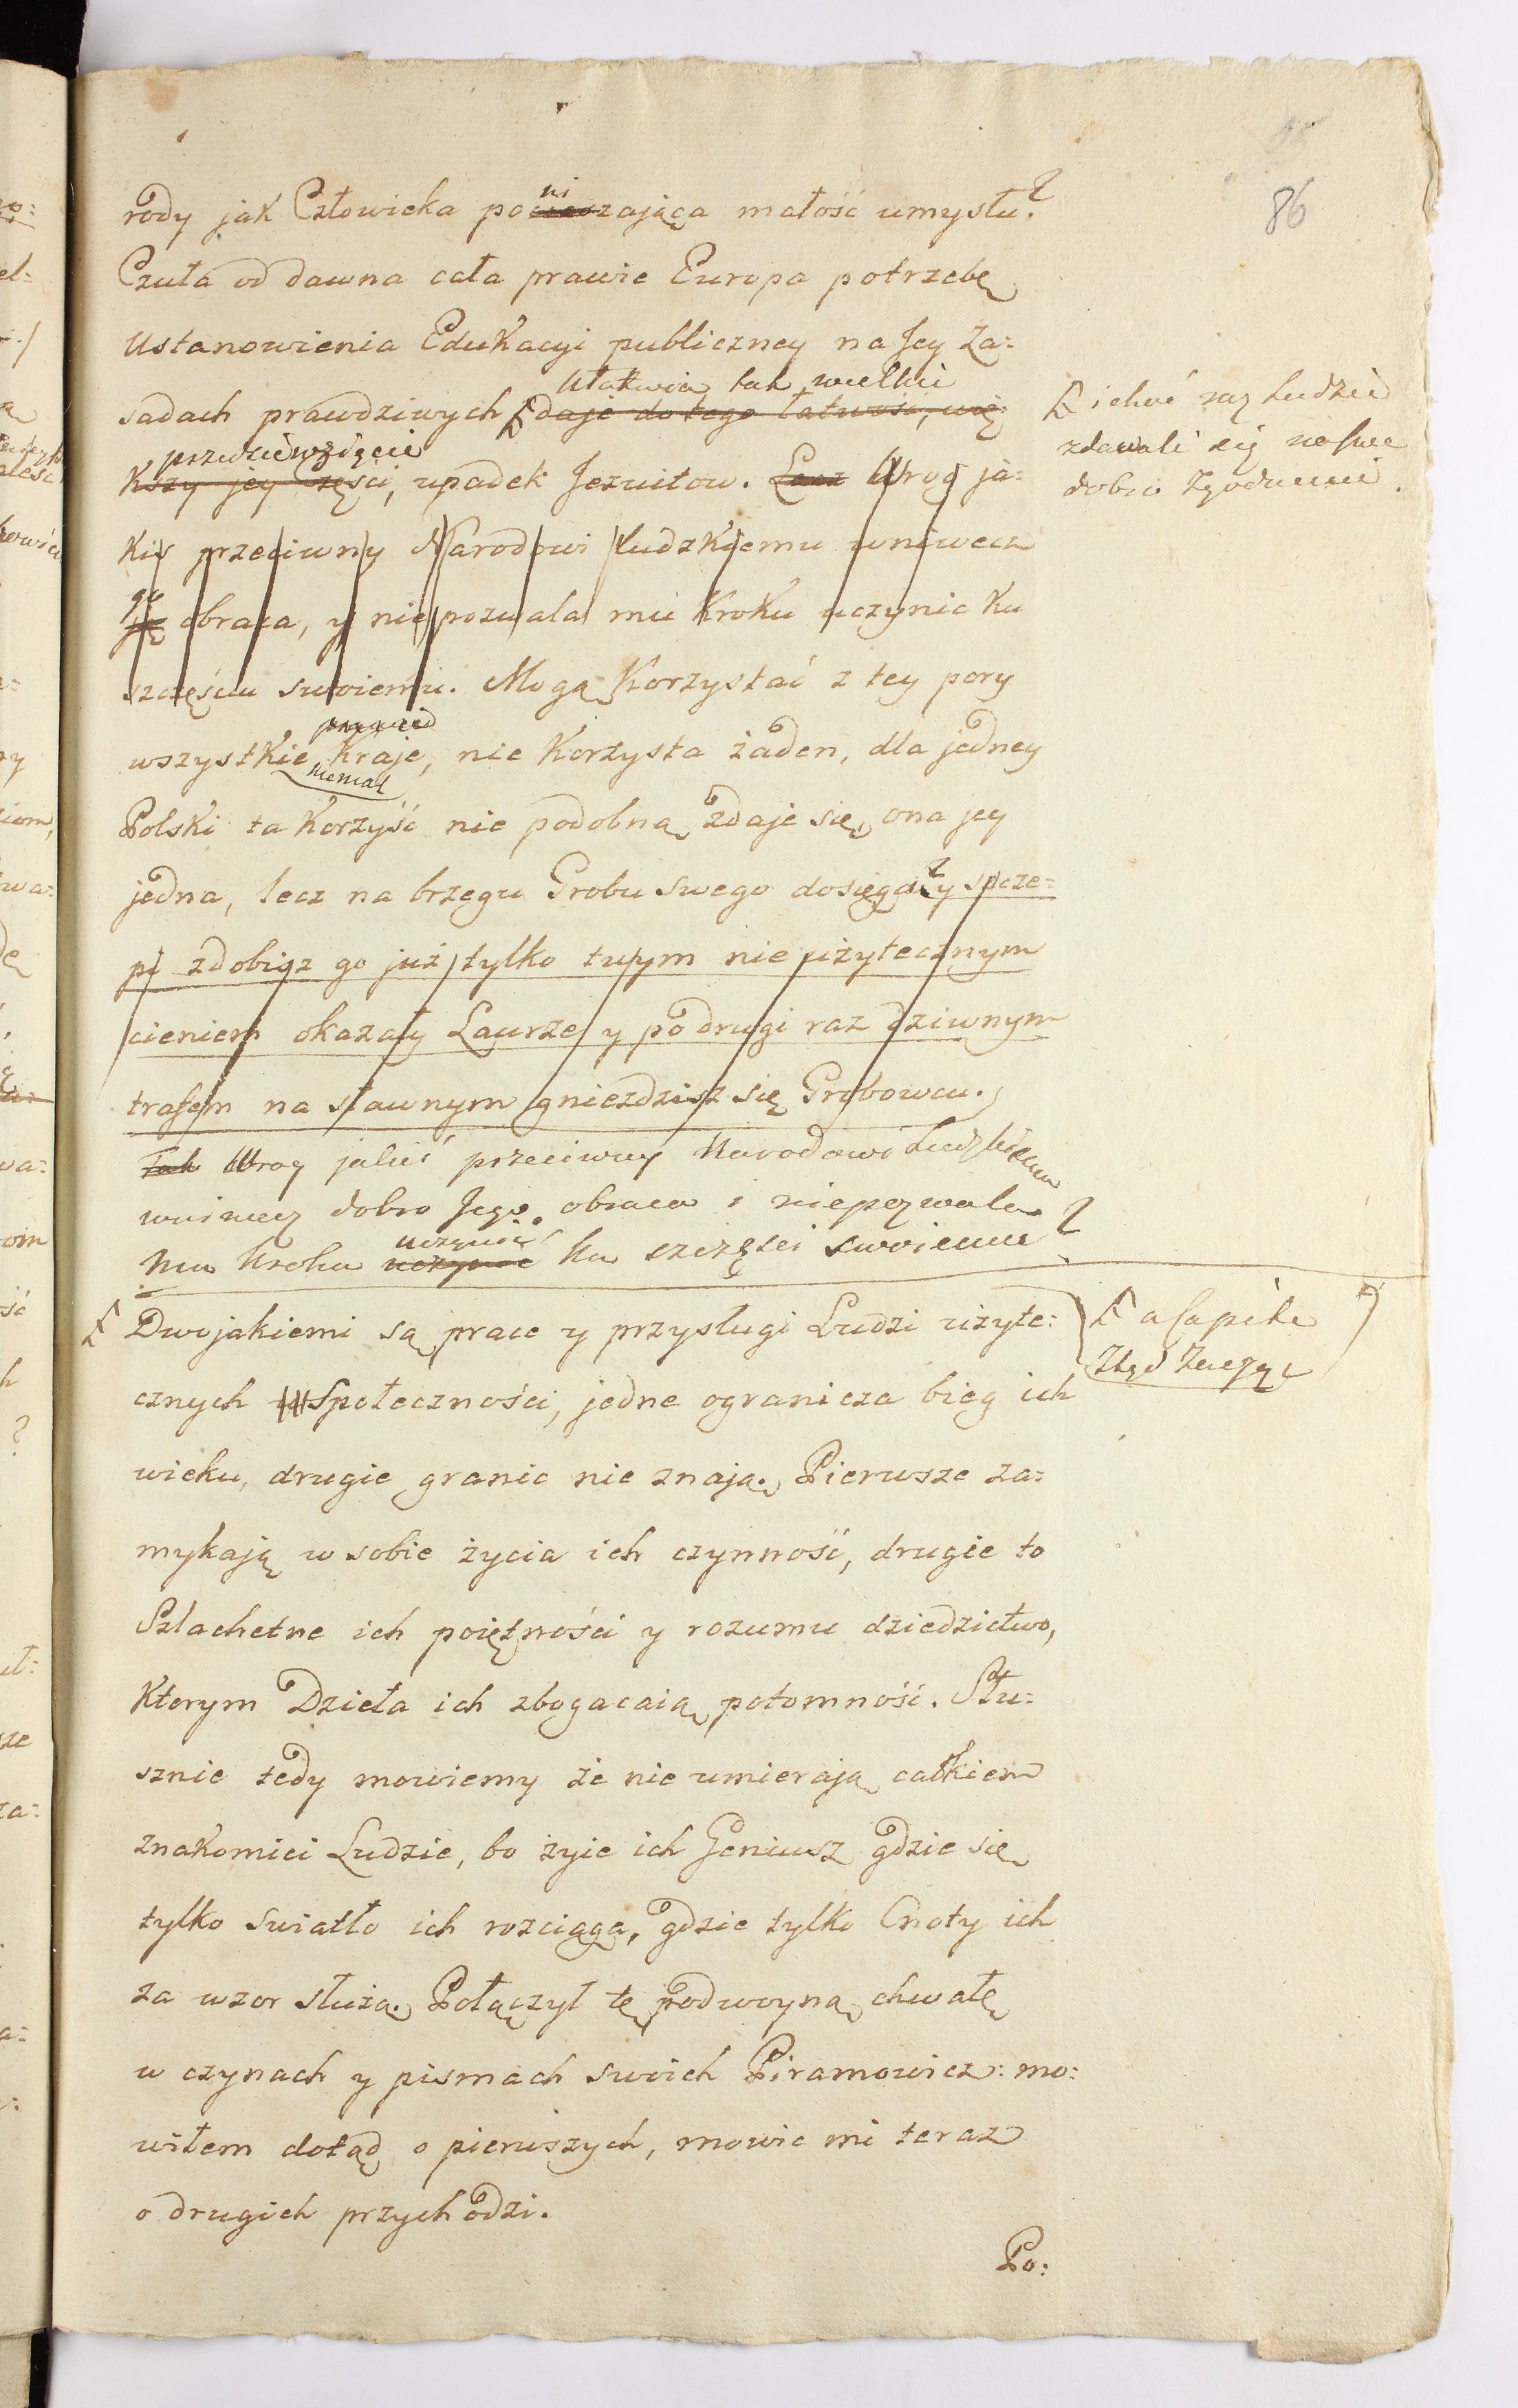 86
rody jak Człowieka poniżzającą małość umysłu?
Czuła od dawna cała prawie Europa potrzebę
Ustanowienia Edukacyi publiczney na Jey Za:
Ułatwia tak wielkie
sadach prawdziwych daje do tego łatwość, wię:
i choć raz Ludzie
zdawali się na swe
dobro Zgodnemi.
przedsięwzięcie
Kszy jey części, upadek Jezuitow. Lecz Wrog ja:
Kiś przeciwny Narodowi ludzkiemu wniwecz
go
ję obraca, y nie pozwala mu Kroku uczynic Ku
szczęściu swoiemu. Mogą Korzystać z tey pory
wszystkie Kraje, nie Korzysta żaden, dla jedney
niemal
Polski ta Korzyść nie podobną zdaje się, ona jey
jedna, lecz na brzegu Grobu swego dosięga ty szcze:
pi zdobisz go już tylko tuym nieużytecznym
cieniem okazały Laurze y po drugi raz dziwnym
trafem na sławnym gnieździsz się Grobowcu.
Tak Wrog jakiś przeciwny Narodowi Ludzkiemu
wniwecz dobro Jego obraca i niepozwala
uczynić
mu Kroku uczynic ku szczęści swoiemu?
Dwojakiemi są prace y przysługi Ludzi użyte:
a capite
Ztąd Zacząć
cznych Społeczności, jedne ogranicza bieg ich
wieku, drugie granic nie znają. Pierwsze za:
mykają w sobie życia ich czynność, drugie to
Szlachetne ich poiętności y rozumu dziedzictwo,
Ktorym Dzieła ich zbogacaią potomność. Słu:
sznie tedy mowiemy że nie umierają całkiem
znakomici Ludzie, bo żyie ich Geniusz gdzie się
tylko swiatło ich rozciąga, gdzie tylko Cnoty ich
za wzor służą. Połączył tę podwoyną chwałę
w czynach y pismach swoich Piramowicz: mo:
wiłem dotąd o pierwszych, mowic mi teraz
o drugich przychodzi.
Po: